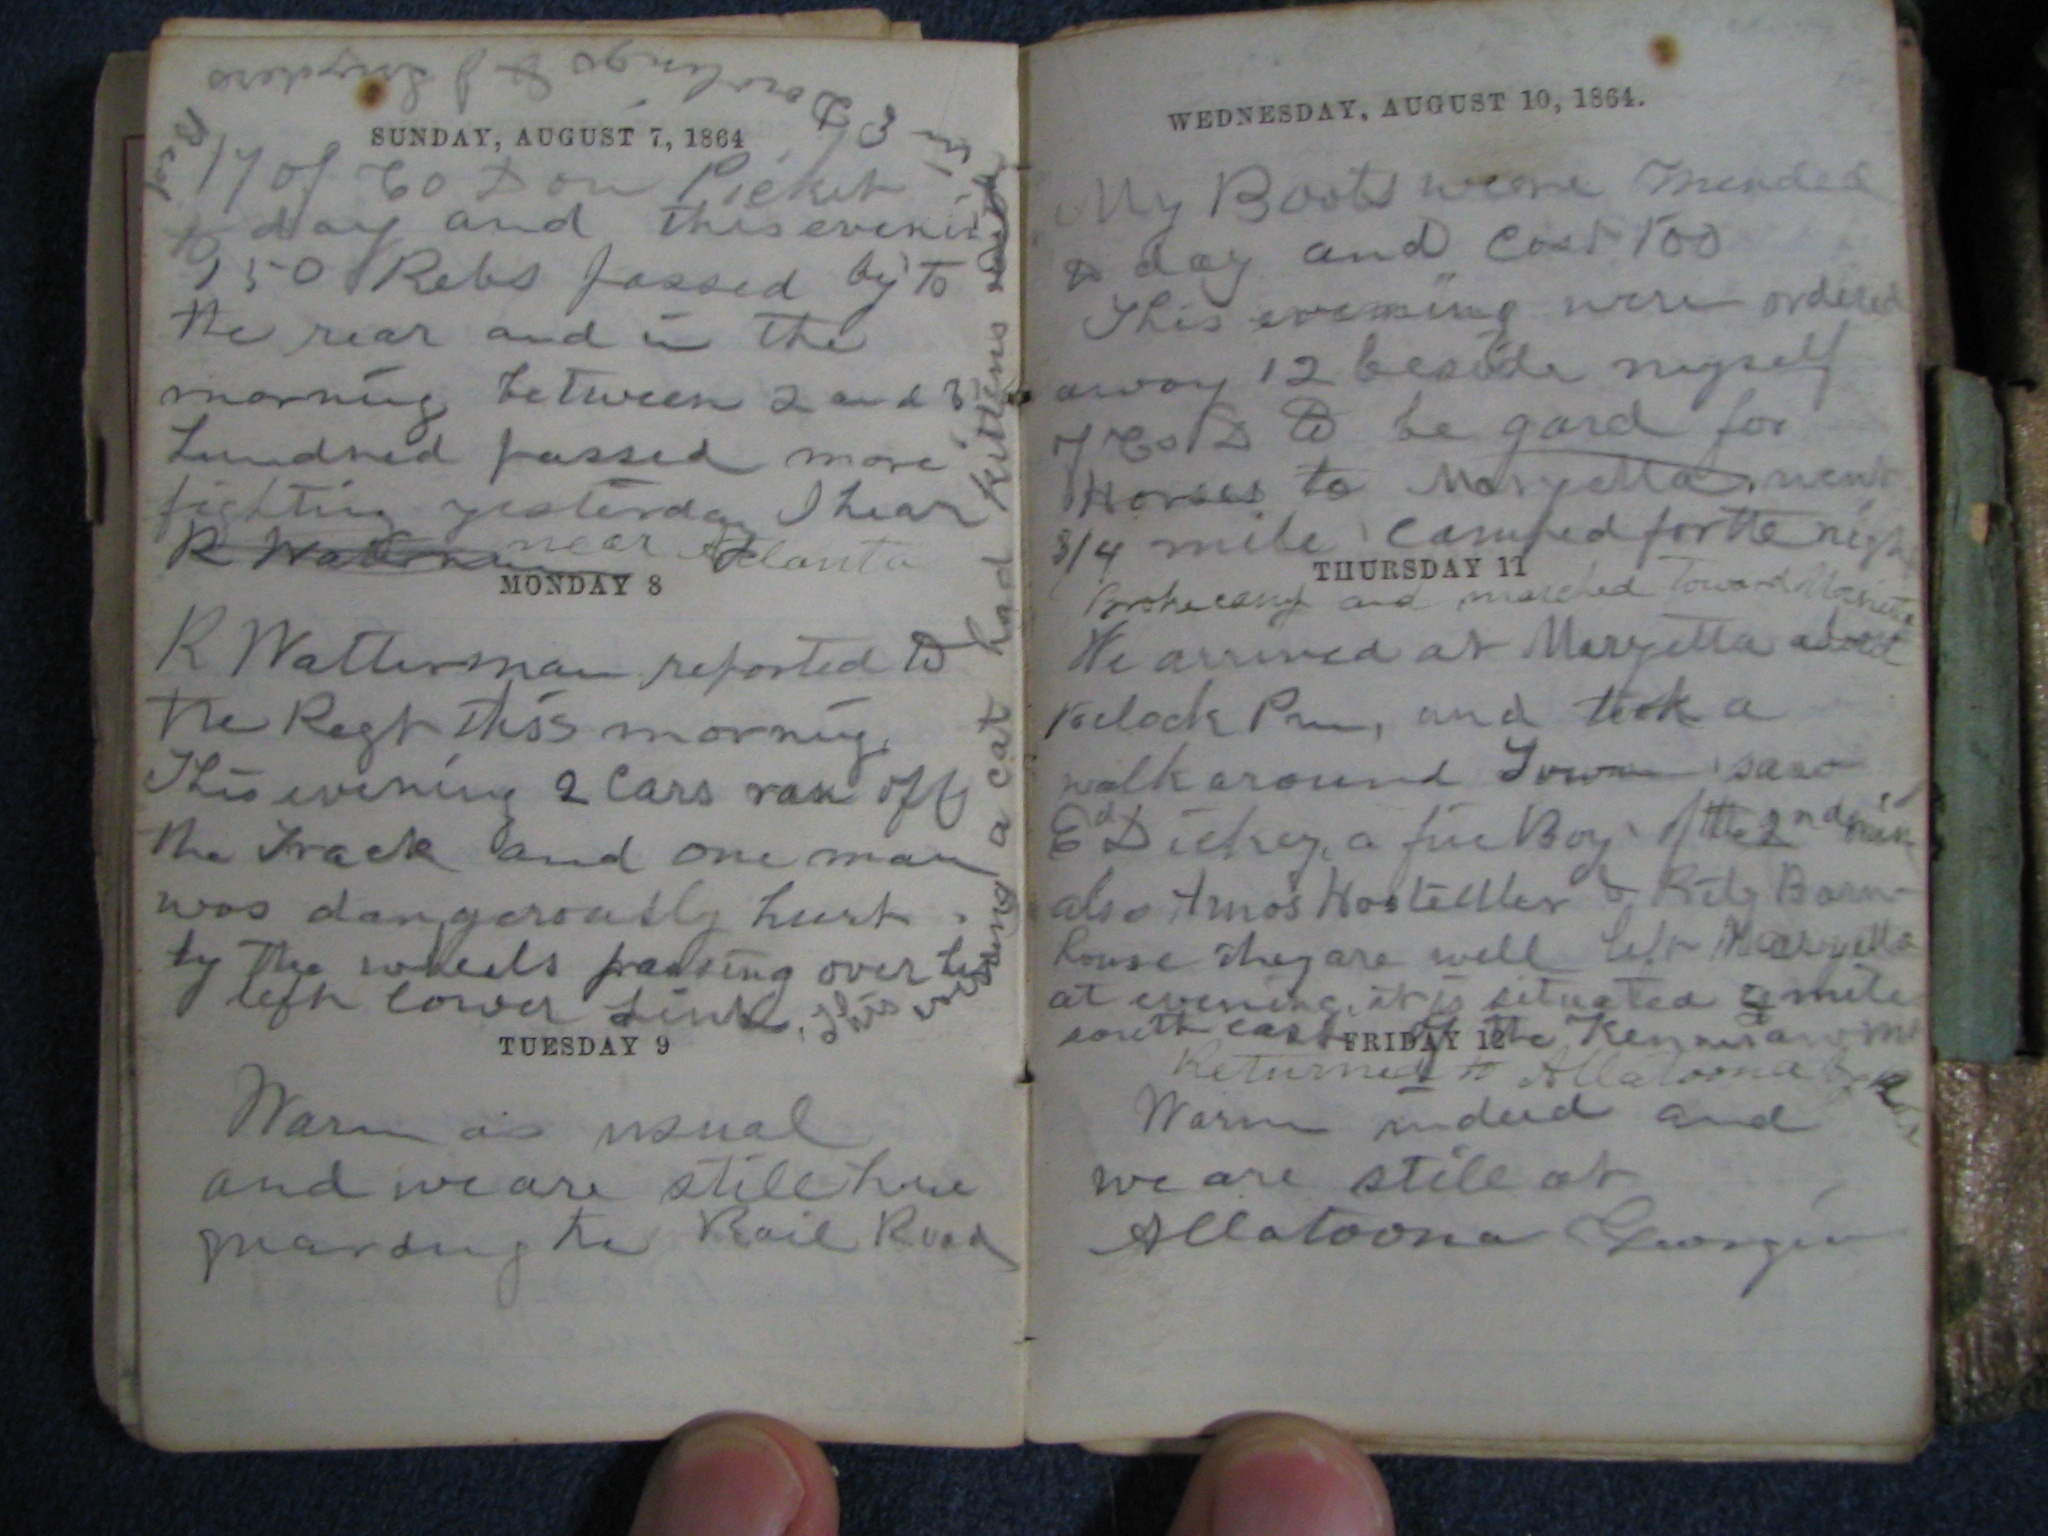 SUNDAY, AUGUST 7, 1864
17 of Co D on Picket
to day and this evenin
150 Rebs passed by to
the rear and in the
morning between 2 and 3
hundred passed more
fighting yesterday I hear
R Watterman near Atlanta
MONDAY 8
R Watterman reported to
the Regt this morning.
This evening 2 Cars ran off
the Track and one man
was dangerously hurt
by the wheels passing over
left lower Limb. This
evening a cat had kittens
in
Dorlings & J Snyders
TUESDAY 9
Warm as usual
and we are still here
guarding the Rail Road
WEDNESDAY, AUGUST 10, 1864.
My Boots were mended
to day and cost 100
This evening were ordered
away 12 beside myself
of Co D to be gard for
Horses to Maryetta, went
3/4 mile camped for the night
THURSDAY 11
Broke camp and marched toward
We arrived at Maryetta about
1 oclock Pm, and took a
walk around Town saw
Ed Dickey, a fine Boy of the 2nd Min
also Amos Hostetller & Barn-
house they are well left Maryetta
at evening, it is situated 2 mile
south east of the Kennisaw Mt
FRIDAY 12
Returned to Allatoona
Warm indeed and
we are still at
Allatoona Georgia